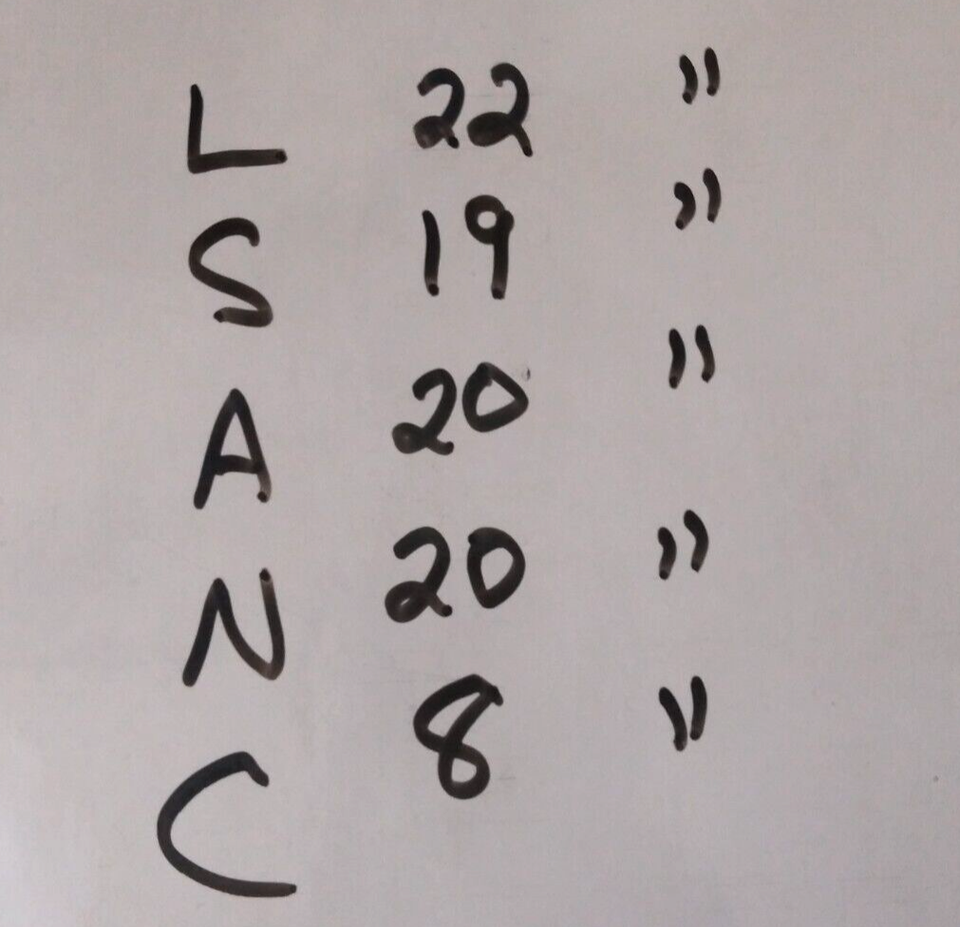 L 22 "
S 19 "
A 20 "
N 20 "
C 8 "